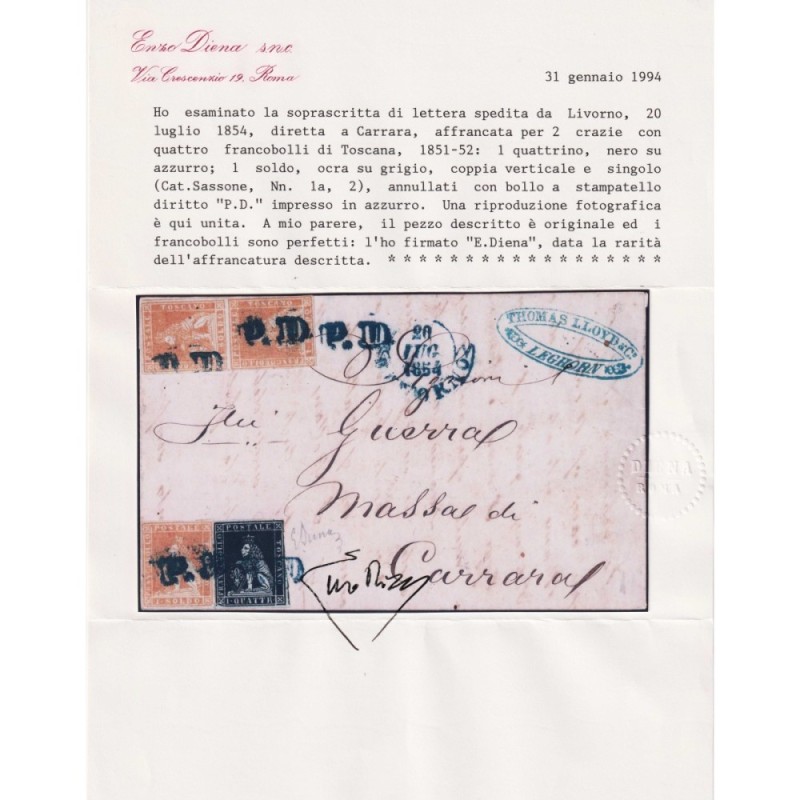 Enzo Diena s.n.c.
Via Crescenzio 19, Roma
31 gennaio 1994
Ho esaminato la soprascritta di lettera spedita da Livorno, 20
luglio 1854, diretta a Carrara, affrancata per 2 crazie con
quattro francobolli di Toscana, 1851-52: 1 quattrino, nero su
azzurro; 1 soldo, ocra su grigio, coppia verticale e singolo
(Cat.Sassone, Nn. 1a, 2), annullati con bollo a stampatello
diritto "P.D." impresso in azzurro. Una riproduzione fotografica
è qui unita. A mio parere, il pezzo descritto è originale ed i
francobolli sono perfetti: l'ho firmato "E.Diena", data la rarità
dell'affrancatura descritta. * * * * * * * * * * * * * * * * * *
TOSCANO
TOSCANO
P.D.
P.D.
P.D.
20
LUG
1854
THOMAS LLOYD & Co
LEGHORN
Guerra
Massa di
Carrara
DIENA
ROMA
POSTALE
POSTALE
TOSCANO
1·SOLDO
1·QUATTR
E.Diena